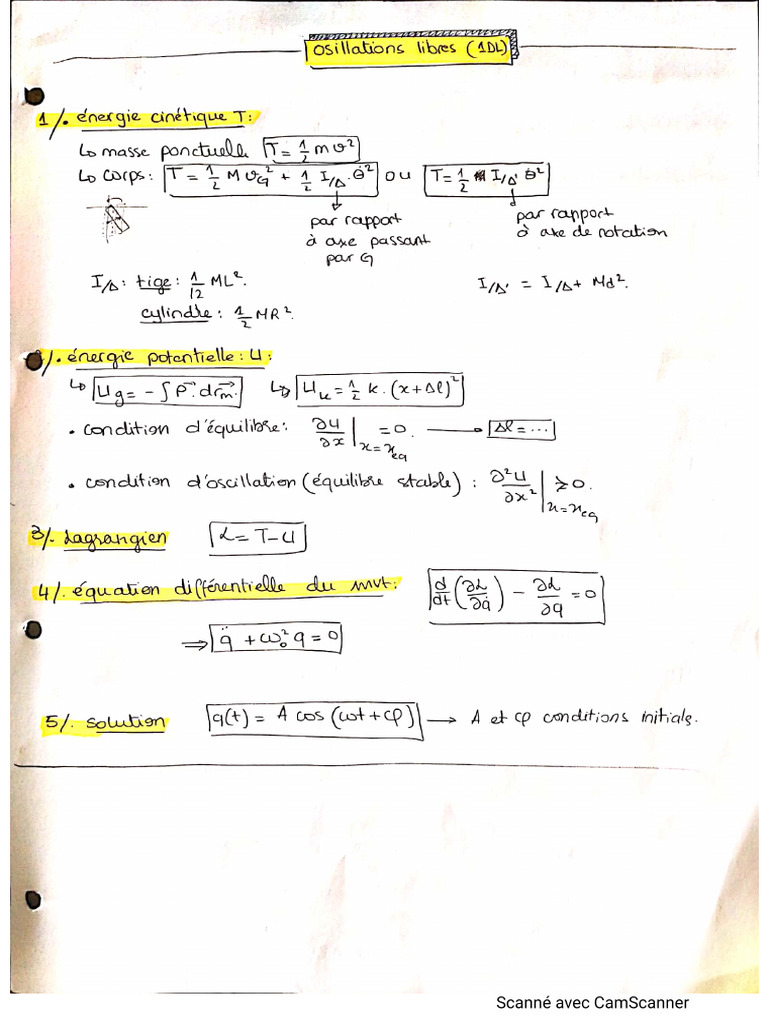 osillations libres (1DL)
1/. énergie cinétique T:
↳ masse ponctuelle T = 1/2 m v²
↳ corps: T = 1/2 M v_G² + 1/2 I/Δ . θ̇² ou T = 1/2 I/Δ' θ̇²
par rapport à axe passant par G
par rapport à axe de rotation
I/Δ: tige: 1/12 ML². I/Δ' = I/Δ + Md².
cylindre: 1/2 MR².
2/. énergie potentielle: U:
↳ U_g = - ∫ P⃗. dr⃗_m. ↳ U_k = 1/2 k. (x + Δl)²
• condition d'équilibre: ∂U/∂x | x = x_eq = 0. → Δl = ...
• condition d'oscillation (équilibre stable) : ∂²U/∂x² | x = x_eq ≥ 0.
3/. Lagrangien L = T - U
4/. équation différentielle du mvt: d/dt (∂L/∂q̇) - ∂L/∂q = 0
⇒ q̈ + ω₀² q = 0
5/. solution q(t) = A cos (ωt + φ) → A et φ conditions initials.
Scanné avec CamScanner